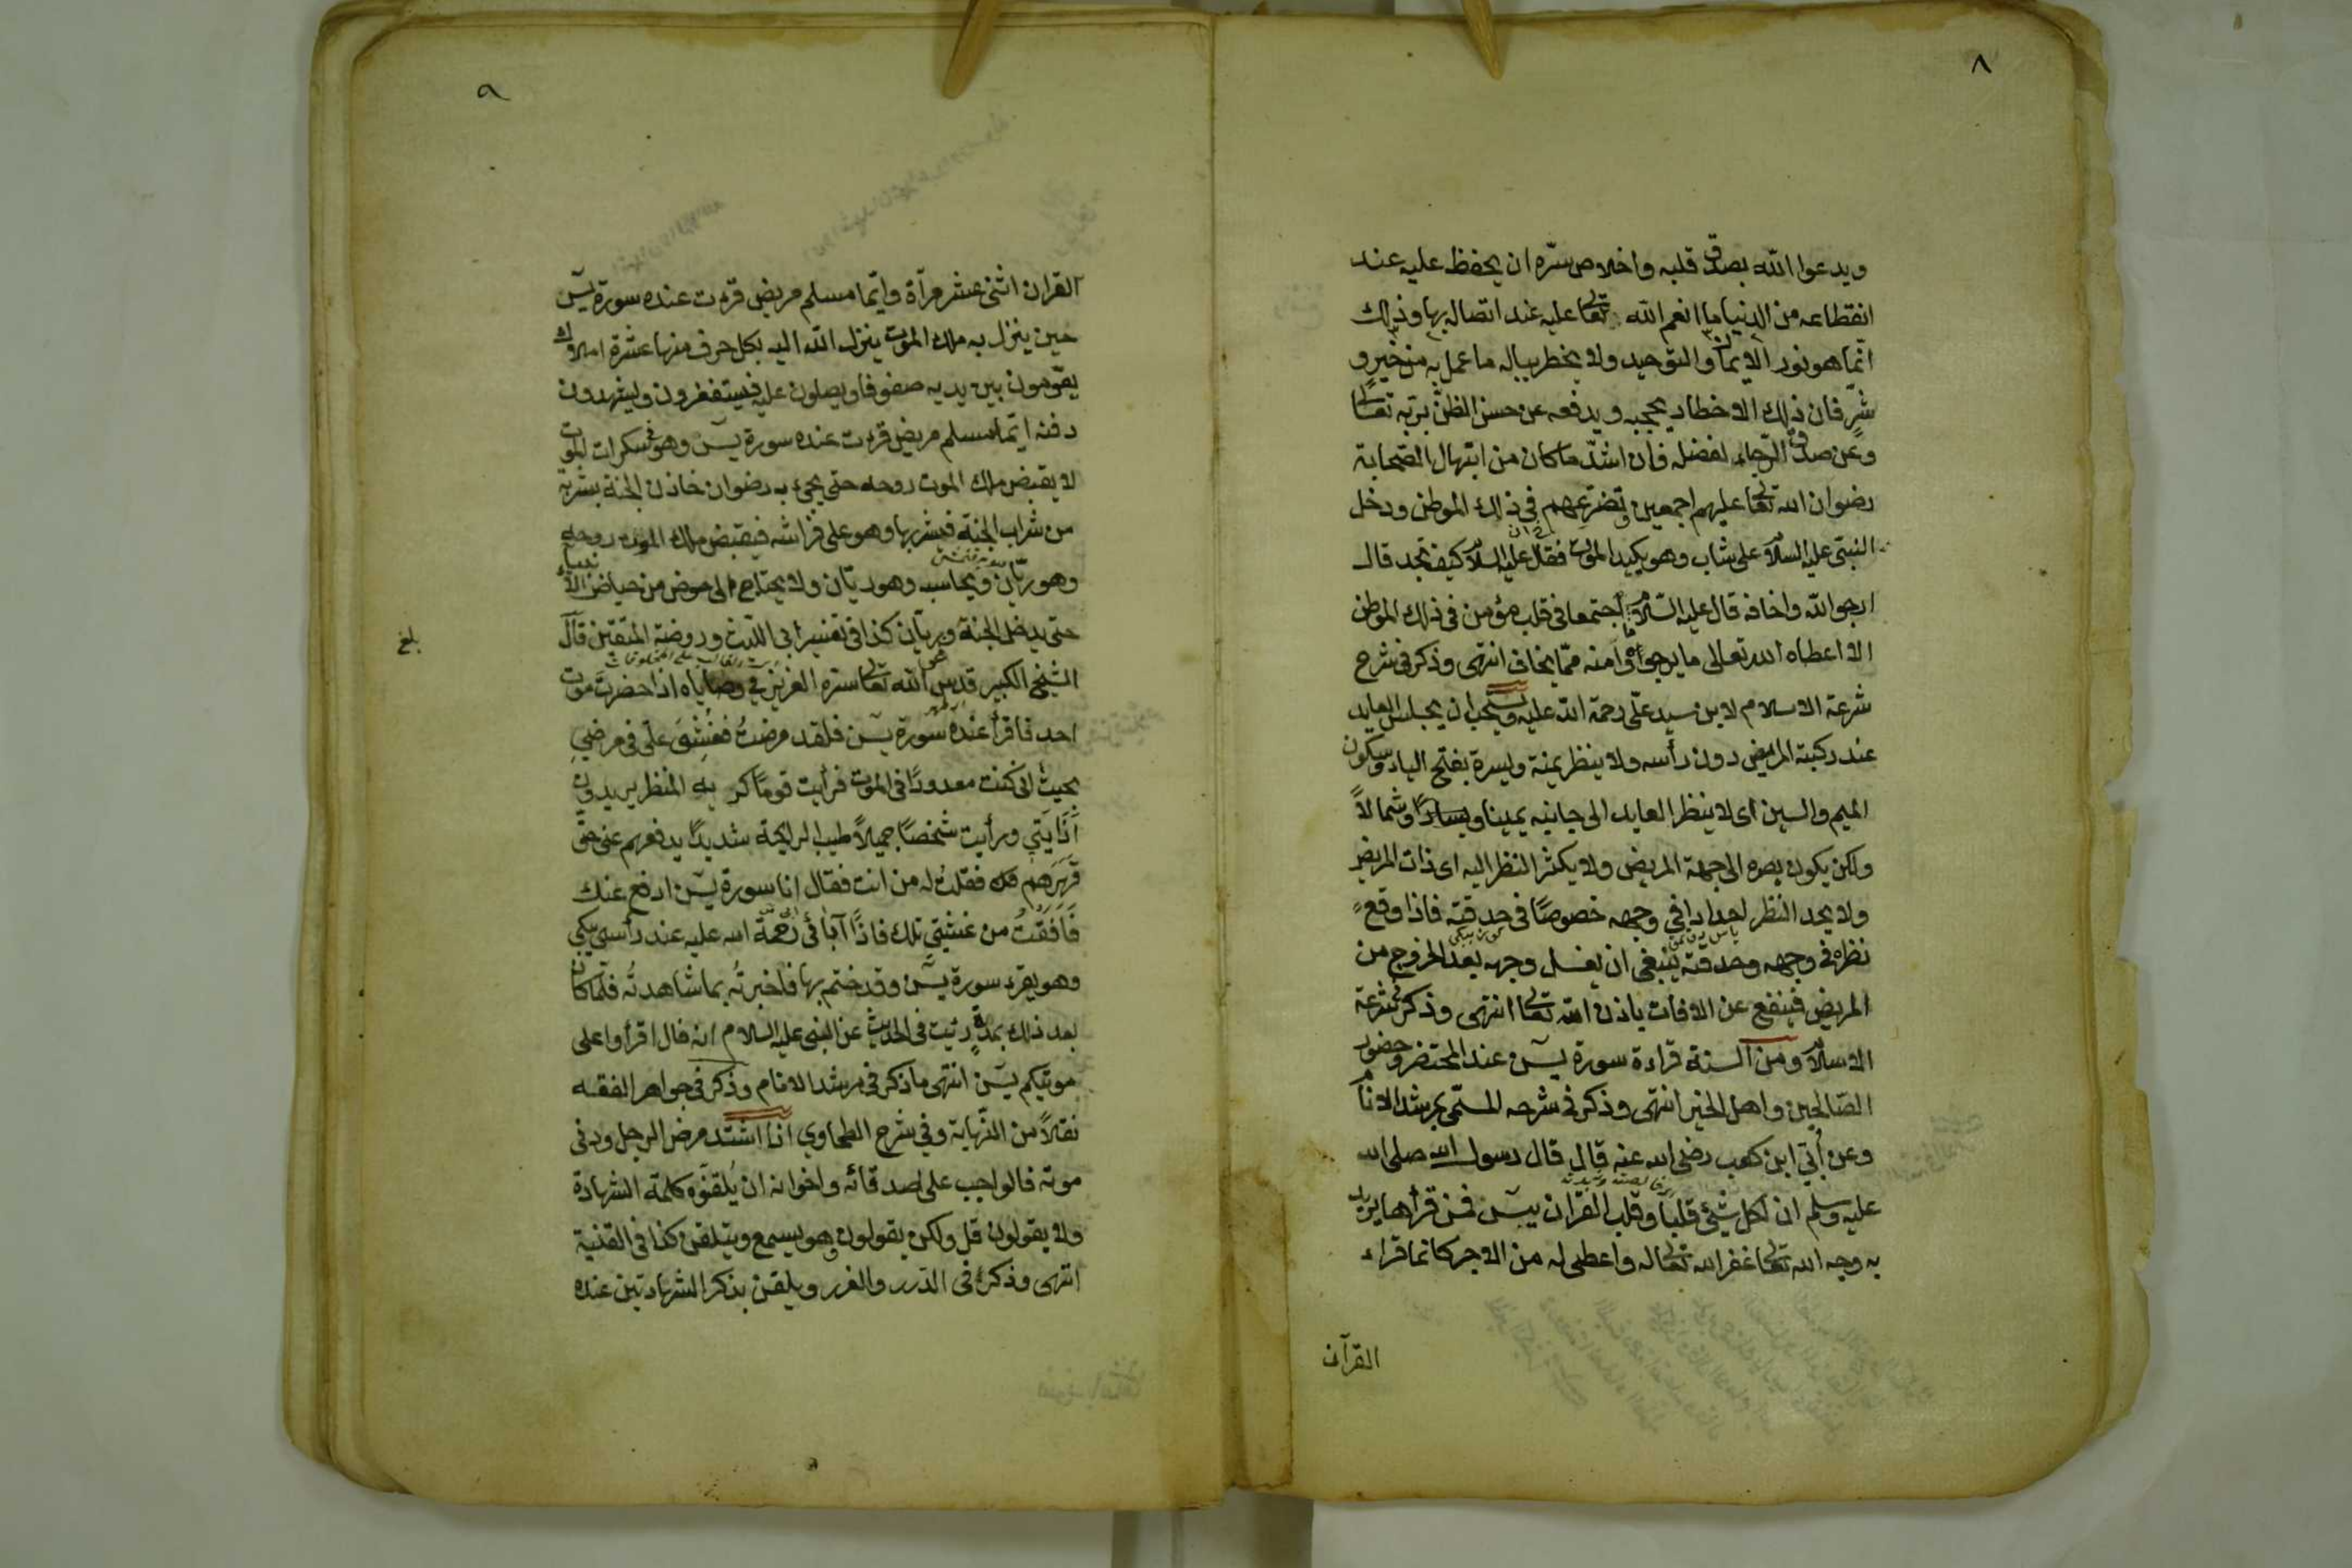 ٨
ويدعوا الله بصدق قلبه واخلاص سره ان يحفظ عليه عند
انقطاعه من الدنيا ما انعم الله تعالى عليه عند اتصاله بها وذلك
انما هو نور الايمان والتوحيد ولا يخطر بباله ما عمل به من خير و
شر فان ذلك الاخطار يحجبه ويدفعه عن حسن الظن بربه تعالى
وعن صدق الرجاء لفضله فان اشد ما كان من ابتهال الصحابة
رضوان الله تعالى عليهم اجمعين وتضرعهم في ذلك الموطن ودخل
النبي عليه السلام على شاب وهو يكيد الموت فقال عليه السلام كيف تجد قال
ارجو الله واخافه قال عليه السلام ما اجتمعا في قلب مؤمن في ذلك الموطن
الا اعطاه الله تعالى ما يرجوا وامنه مما يخاف انتهى وذكر في شرح
شرعة الاسلام لابن سيد علي رحمة الله عليه ويستحب ان يجلس العايد
عند ركبة المريض دون رأسه ولا ينظر يمنة ويسرة بفتح الياء وسكون
الميم والسين اى لا ينظر العايد الى جانبيه يمينا ويسارًا وشمالاً
ولكن يكون بصره الى جهة المريض ولا يكثر النظر اليه اى ذات المريض
ولا يحد النظر احدادا في وجهه خصوصًا في حدقته فاذا وقع
نظره في وجهه وحدقته ينبغي ان يغسل وجهه بعد الخروج من
المريض فينفع عن الافات باذن الله تعالى انتهى وذكر في شرعة
الاسلام ومن السنة قراءة سورة يس عند المحتضر وحضور
الصالحين واهل الخير انتهى وذكر في شرحه المسمى بمرشد الانام
وعن أبي ابن كعب رضي الله عنه قال قال رسول الله صلى الله
عليه وسلم ان لكل شيئ قلبا وقلب القران يس فمن قرأها يريد
به وجه الله تعالى غفر الله تعالى له واعطى له من الاجر كانما قراء
القرآن
٩
القران اثنى عشر مرآة وايما مسلم مريض قرءت عنده سورة يس
حين ينزل به ملك الموت ينزل الله اليه بكل حرف منها عشرة املاك
يقومون بين يديه صفوفا ويصلون عليه فيستغفرون وليشهدون
دفنه ايما مسلم مريض قرءت عنده سورة يس وهو في سكرات الموت
لا يقبض ملك الموت روحه حتى يجيء به رضوان خازن الجنة بشربة
من شراب الجنة فيشربها وهو على فراشه فيقبض ملك الموت روحه
وهو ريان ويحاسب وهو ريان ولا يحتاج الى حوض من حياض الانبياء
حتى يدخل الجنة وريان كذا في تفسير ابي الليث وروضة المتقين قال
بلغ
الشيخ الكبير قدس الله تعالى سره العزيز في وصاياه اذا حضرت موت
احد فاقرأ عنده سورة يس فلقد مرضت فغشى على في مرضي
بحيث اني كنت معدودًا في الموت فرأيت قومًا كريه المنظر يريدون
أذايتي ورأيت شخصًا جميلاً طيب الرايحة شديدًا يدفعهم عني حتى
قهرهم فقلت له من انت فقال انا سورة يس ادفع عنك
فأفقت من غشيتي تلك فاذا آبائى رحمة الله عليه عند رأسي يبكي
وهو يقرء سورة يس وقد ختم بها فاخبرته بما شاهدته فلما كان
بعد ذلك بمدة رئيت في الحديث عن النبي عليه السلام انه قال اقرأوا على
موتيكم يس انتهى ما ذكر في مرشد الانام وذكر في جواهر الفقه
نقلاً من النهاية وفي شرح الطحاوي اذا اشتد مرض الرجل ودنى
موته فالواجب على اصدقائه واخوانه ان يلقنوه كلمة الشهادة
ولا يقولون قل ولكن يقولون وهو يسمع ويتلقن كذا في القنية
انتهى وذكر في الدرر والغرر ويلقن بذكر الشهادتين عنده